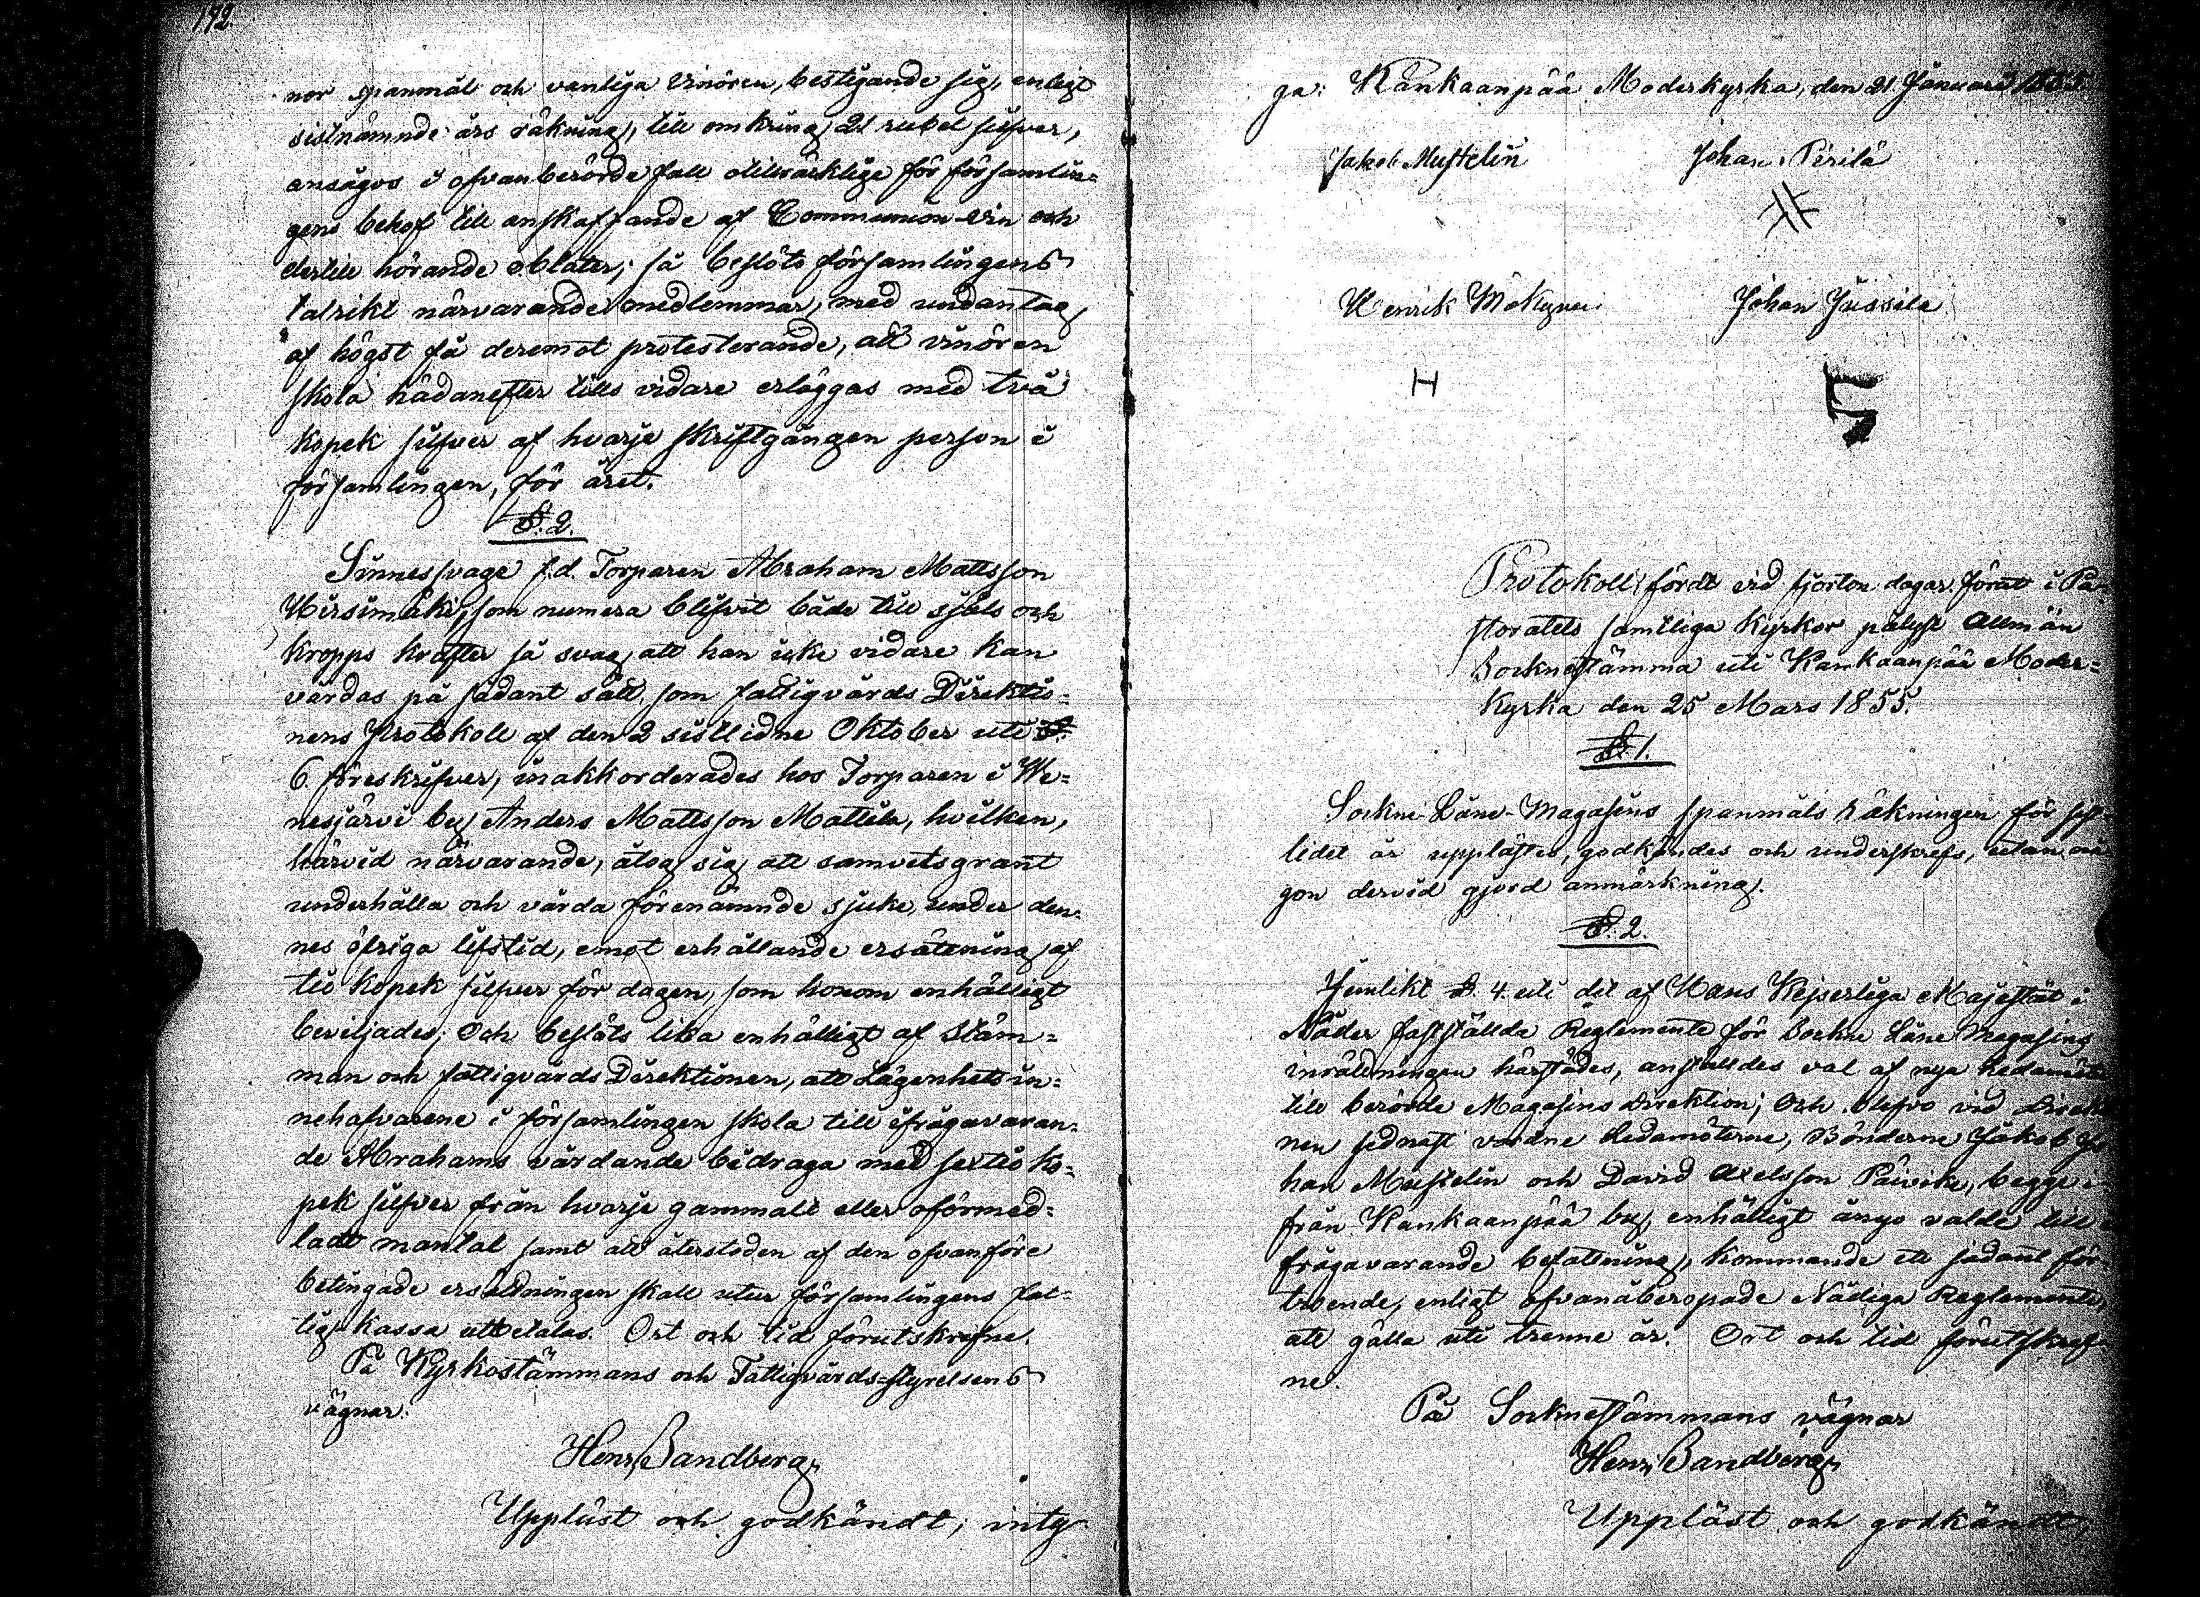 192.
nor spanmål och vanliga vinören, bestigande sig, enligt
sistnämnde års räkning, till omkring 21 rubel silfver,
ansågos i ofvanberörde fall otillräcklige för församlin=
gens behof till anskaffande af Communion-vin och
dertill hörande oblater; så beslöts församlingens
talrikt närvarande medlemmar, med undantag
af högst få deremot protesterande, att vinören
skola hädanefter tills vidare erläggas med två
kopek silfver af hvarje skriftgången person i
församlingen, för året.
§. 2.
Sinnessvage f.d. Torparen Abraham Mattsson
Hirsimäki, som numera blifvit både till själs och
kropps krafter så svag att han icke vidare kan
vårdas på sådant sätt, som fattigvårds Direktio=
nens Protokoll af den 2 sistlidne Oktober uti §.
6. föreskrifver, inakkorderades hos Torparen i We=
nesjärvi by Anders Mattsson Mattila, hvilken,
härvid närvarande, åtog sig att samvetsgrant
underhålla och vårda förenämnde sjuke, under den=
nes öfriga lifstid, emot erhållande ersättning af
tio kopek silfver för dagen, som honom enhälligt
beviljades; Och beslöts lika enhälligt af Stäm=
man och fattigvårds Direktionen, att Lägenhets in=
nehafvarene i församlingen skola till ifrågavaran=
de Abrahams vårdande bidraga med sextio ko=
pek silfver från hvarje gammalt eller oförmed=
ladt mantal samt att återstoden af den ofvanföre
betingade ersättningen skall utur församlingens fat=
tig kassa utbetalas. Ort och tid förutskrifne.
På Kyrkostämmans och Fattigvårds=styrelsens
vägnar:
Henr. Sandberg.
Uppläst och godkändt; intyga
ga: Kankaanpää Moderkyrka, den 21 Januarii 1855.
Jakob Mustelin Johan Perilä
Henrik Johan Jussila
H
Protokoll fördt vid fjorton dagar förut i Pa=
storatets samtliga kyrkor pålyst Allmän
Socknestämma uti Kankaanpää Moder=
kyrka den 25 Mars 1855.
§. 1.
Sockne Låne-Magasins spanmåls räkningen för sist
lidet år upplästes, godkändes och underskrefs, utan nå
gon dervid gjord anmärkning.
§. 2.
Jemlikt §. 4. uti det af Hans Kejserliga Majestät i
Nåder fastställda Reglemente för Sockne Låne Magasins
inrättningen härstädes, anställdes val af nya Ledamöter
till berörde Magasins Direktion; Och blefvo vid Direk
nen sednast vordne Ledamöterne, Bönderne Jakob Jo
han Mustelin och David Axelsson Päivike, begge i
från Kankaanpää by, enhälligt ånyo valde till
frågavarande befattning, kommande ett sådant för
troende, enligt ofvanåberopade Nådiga Reglemente,
att gälla uti trenne år. Ort och tid förutskrif
ne.
På Sockneställmans vägnar
Henr. Sandberg.
Uppläst och godkändt,